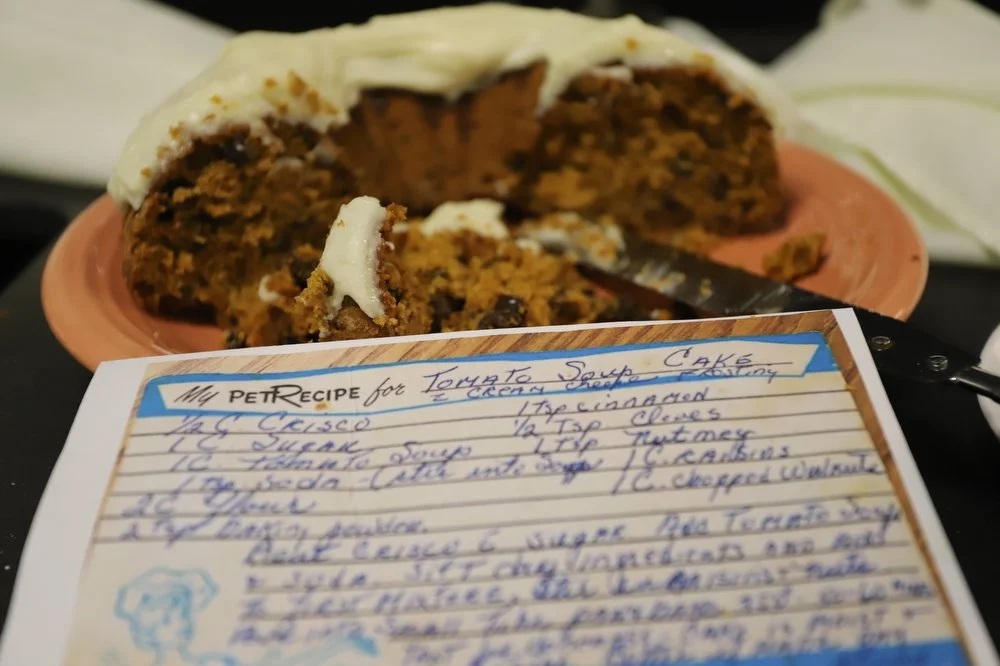 My PETRECIPE for TOMATO SOUP CAKE
& CREAM Cheese Frosting
1/2 C CRISCO
1 C SUGAR
1C. Tomato Soup
1 Tsp Soda - (stir into Soup
2 C Flour
2 Tsp Bakin powder.
1 Tsp CINNAMON
1/2 Tsp Cloves
1 Tsp Nutmeg
1 C. RAISINS
1 C. chopped Walnuts
Beat CRISCO & SUGAR Add TOMATO Soup
& SODA. SIFT dry INgredients AND Add
to FIRST MIXTURE, Add RAISINS & Nuts
INTO SMALL Tube 350
CAKE IS MOIST &